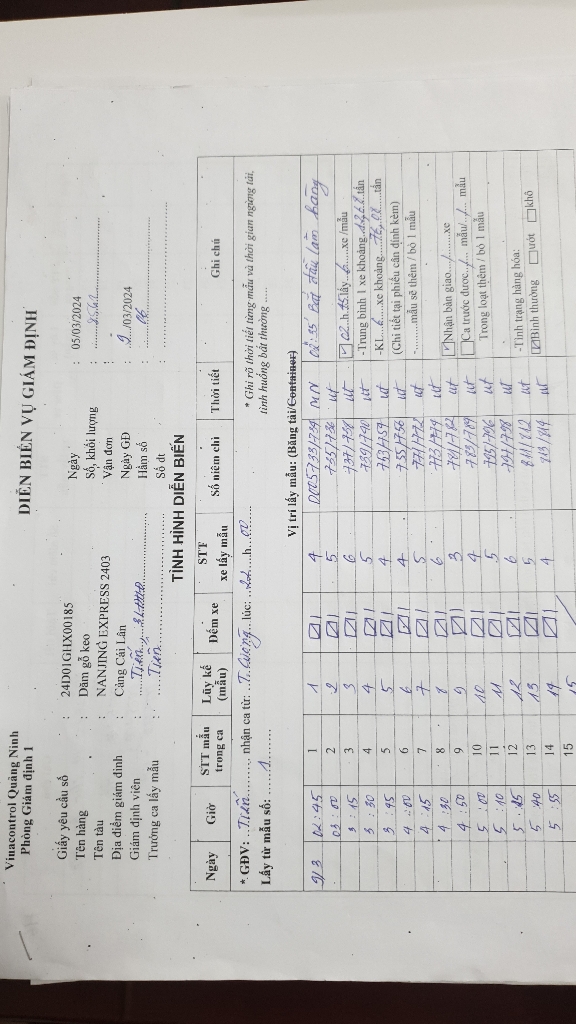 Vinacontrol Quảng Ninh
Phòng Giám định 1
DIỄN BIẾN VỤ GIÁM ĐỊNH
Giấy yêu cầu số : 24D01GHX00185
Ngày : 05/03/2024
Tên hàng : Dăm gỗ keo
Số, khối lượng :
Tên tàu : NANJING EXPRESS 2403
Vận đơn
Địa điểm giám định : Cảng Cái Lân
Ngày GĐ : 9../03/2024
Giám định viên : Tiến
Hầm số :
Trưởng ca lấy mẫu : Tiến
Số đt :
TÌNH HÌNH DIỄN BIẾN
Ngày Giờ STT mẫu trong ca Lũy kế (mẫu) Đếm xe STT xe lấy mẫu Số niêm chì Thời tiết Ghi chú
* GĐV: ..Tiến........, nhận ca từ: ..T. Cường...lúc: ..22...h..00.......
* Ghi rõ thời tiết từng mẫu và thời gian ngừng tải,
Lấy từ mẫu số: ......1........
tình huống bất thường .....
Vị trí lấy mẫu: (Băng tải/Container)
9/3 02:45 1 1 ☑1 4 D005733/734 MN 02:35 Bắt đầu làm hàng
03:00 2 2 ☑1 5 735/736 ut
3:15 3 3 ☑1 6 737/738 ut
3:30 4 4 ☑1 5 739/740 ut
3:45 5 5 ☑1 4 ut
4:00 6 6 ☑1 4 ut
4:15 7 7 ☑1 5 771/772 ut
4:30 8 8 ☑1 6 ut
4:50 9 9 ☑1 3 ut
5:00 10 10 ☑1 4 ut
5:10 11 11 ☑1 5 ut
5:25 12 12 ☑1 6 ut
5:40 13 13 ☑1 5 811/812 ut
5:55 14 14 ☑1 4 813/814 ut
15 15
☑ 02.h.35lấy..6.......xe /mẫu
-Trung bình 1 xe khoảng tấn
-KL...6......xe khoảng tấn
(Chi tiết tại phiếu cân định kèm)
-..........mẫu sẽ thêm / bỏ 1 mẫu
☑Nhận bàn giao.../........xe
☐Ca trước được.../... mẫu/.../... mẫu
Trong loạt thêm / bỏ 1 mẫu
-Tình trạng hàng hóa:
☑Bình thường ☐ướt ☐khô